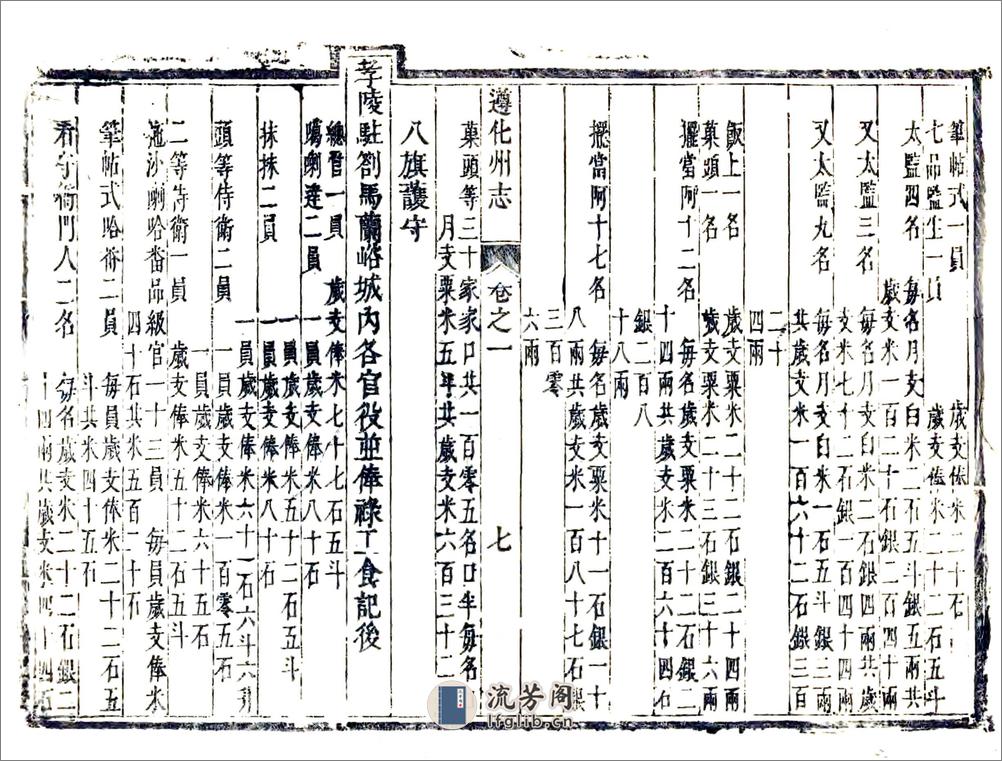 筆帖式一員 歲支俸米二十石
七品監生一員 歲支俸米二十二石五斗
太監四名 每名月支白米二石五斗銀五兩共
歲支米一百二十石銀二百四十兩
又太監三名 每名月支白米二石銀四兩共歲
支米七十二石銀一百四十四兩
又太監九名 每名月支白米一石五斗銀三兩
共歲支米一百六十二石銀三百
二十
四兩
飯上一名 歲支粟米二十二石銀二十四兩
菓頭一名 歲支粟米二十三石銀三十六兩
擺當阿十二名 每名歲支粟米二十二石銀二
十四兩共歲支米二百六十四石
銀二百八
十八兩
擺當阿十七名 每名歲支粟米十一石銀一十
八兩共歲支米一百八十七石銀
三百零
六兩
遵化州志 卷之一 七
菓頭等三十家家口共一百零五名口半每名
月支粟米五斗共歲支米六百三十二
八旗護守
孝陵駐劄馬蘭峪城內各官役並俸祿工食記後
總管一員 歲支俸米七十七石五斗
噶喇達二員 一員歲支俸米八十石
一員歲支俸米五十二石五斗
抹抹二員 一員歲支俸米八十石
一員歲支俸米六十一石六斗六升
頭等侍衛二員 一員歲支俸米一百零五石
一員歲支俸米六十五石
二等侍衛一員 歲支俸米五十二石五斗
拖沙喇哈番品級官一十三員 每員歲支俸米
四十石共米五百二十石
筆帖式哈番二員 每員歲支俸米二十二石五
斗共米四十五石
看守衙門人二名 每名歲支米二十二石銀二
十四兩共歲支米四十四石
流芳阁
lfglib.cn